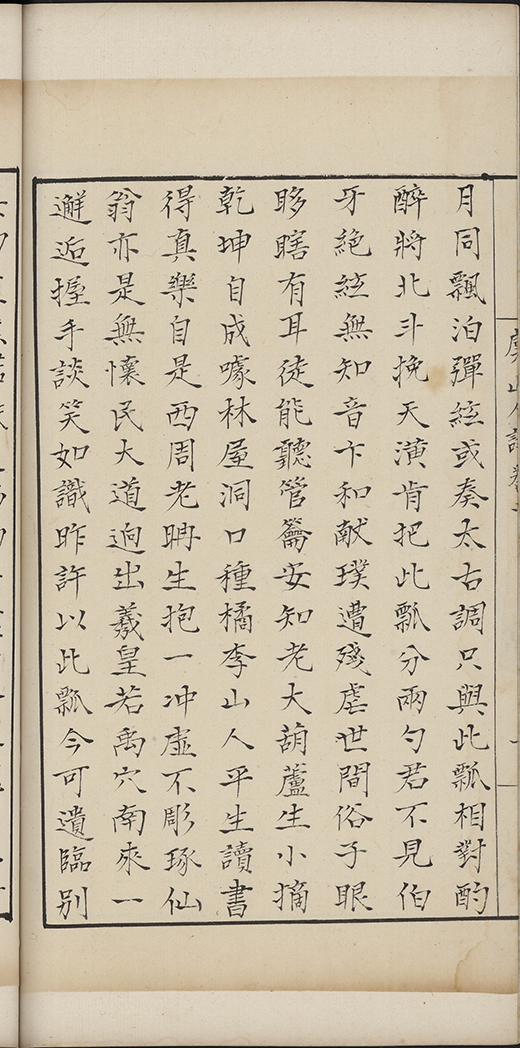 月同飄泊彈絃或奏太古調只與此瓢相對酌
醉將北斗挽天潢肯把此瓢分兩勺君不見伯
牙絶絃無知音卞和献璞遭殘虐世間俗子眼
眵瞎有耳徒能聽管籥安知老大葫蘆生小摘
乾坤自成噱林屋洞口種橘李山人平生讀書
得真樂自是西周老聃生抱一冲虛不彫琢仙
翁亦是無懷民大道逈出羲皇若禹穴南來一
邂逅握手談笑如識昨許以此瓢今可遺臨别